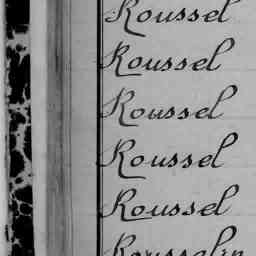 Roussel
Roussel
Roussel
Roussel
Roussel